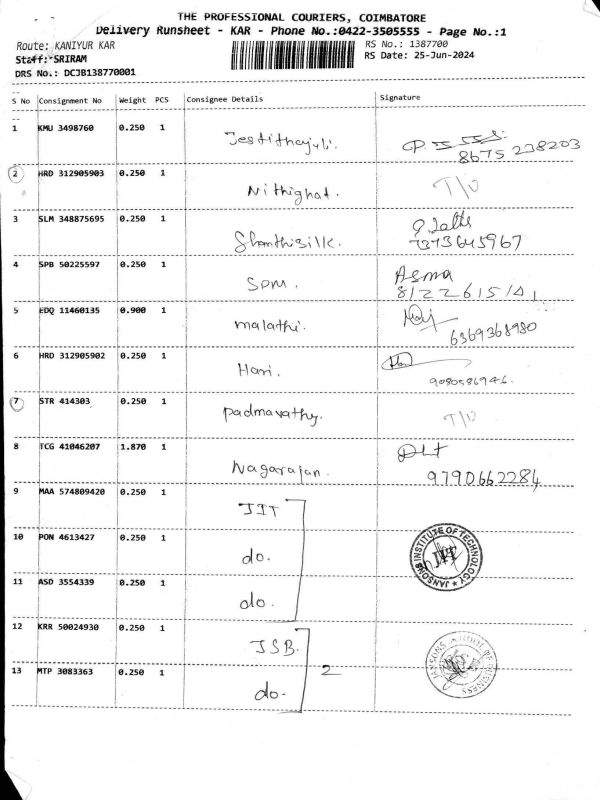 THE PROFESSIONAL COURIERS, COIMBATORE
Delivery Runsheet - KAR - Phone No.:0422-3505555 - Page No.:1
Route: KANIYUR KAR RS No.: 1387700
Staff: SRIRAM RS Date: 25-Jun-2024
DRS No.: DCJB138770001
S No Consignment No Weight PCS Consignee Details Signature
1 KMU 3498760 0.250 1
8675 238203
2 HRD 312905903 0.250 1 Nithighat. T/O
3 SLM 348875695 0.250 1 Shanthisilk.
7373645967
4 SPB 50225597 0.250 1 SPM. Asma
8122615141
5 EDQ 11460135 0.900 1 malathi.
6369368980
6 HRD 312905902 0.250 1 Hari.
9080586946.
7 STR 414303 0.250 1 padmavathy. T/O
8 TCG 41046207 1.870 1 Nagarajan.
9790662284
9 MAA 574809420 0.250 1 JIT
10 PON 4613427 0.250 1 do.
JANSONS INSTITUTE OF TECHNOLOGY
JIT
11 ASD 3554339 0.250 1 do.
12 KRR 50024930 0.250 1 JSB.
JANSONS SCHOOL OF BUSINESS
2
13 MTP 3083363 0.250 1 do.